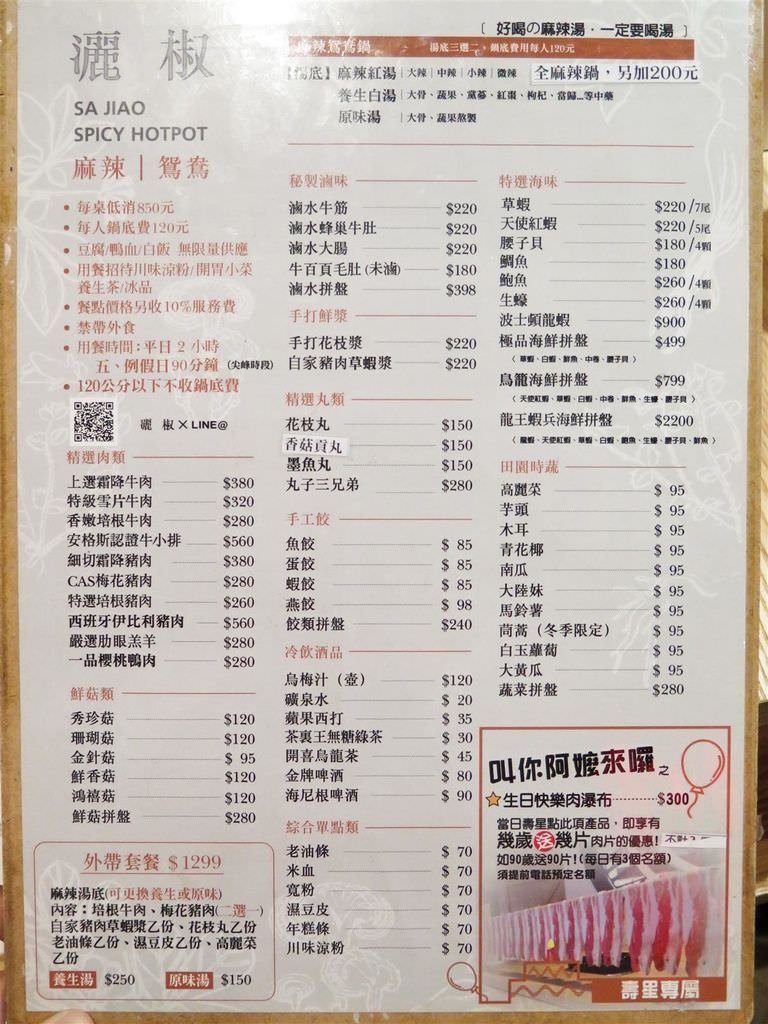 灑椒
SA JIAO
SPICY HOTPOT
麻辣｜鴛鴦
• 每桌低消850元
• 每人鍋底費120元
• 豆腐/鴨血/白飯 無限量供應
• 用餐招待川味涼粉/開胃小菜
養生茶/冰品
• 餐點價格另收10%服務費
• 禁帶外食
• 用餐時間：平日 2 小時
五、例假日90分鐘 (尖峰時段)
• 120公分以下不收鍋底費
灑 椒 × LINE@
〔 好喝の麻辣湯．一定要喝湯 〕
麻辣鴛鴦鍋 湯底三選二，鍋底費用每人120元
【湯底】麻辣紅湯 | 大辣 | 中辣 | 小辣 | 微辣 全麻辣鍋，另加200元
養生白湯 | 大骨、蔬果、黨蔘、紅棗、枸杞、當歸...等中藥
原味湯 | 大骨、蔬果熬製
精選肉類
上選霜降牛肉 $380
特級雪片牛肉 $320
香嫩培根牛肉 $280
安格斯認證牛小排 $560
細切霜降豬肉 $380
CAS梅花豬肉 $280
特選培根豬肉 $260
西班牙伊比利豬肉 $560
嚴選肋眼羔羊 $280
一品櫻桃鴨肉 $280
鮮菇類
秀珍菇 $120
珊瑚菇 $120
金針菇 $ 95
鮮香菇 $120
鴻禧菇 $120
鮮菇拼盤 $280
外帶套餐 $1299
麻辣湯底(可更換養生或原味)
內容：培根牛肉、梅花豬肉(二選一)
自家豬肉草蝦漿乙份、花枝丸乙份
老油條乙份、濕豆皮乙份、高麗菜
乙份
養生湯 $250 原味湯 $150
秘製滷味
滷水牛筋 $220
滷水蜂巢牛肚 $220
滷水大腸 $220
牛百頁毛肚(未滷) $180
滷水拼盤 $398
手打鮮漿
手打花枝漿 $220
自家豬肉草蝦漿 $220
精選丸類
花枝丸 $150
香菇貢丸 $150
墨魚丸 $150
丸子三兄弟 $280
手工餃
魚餃 $ 85
蛋餃 $ 85
蝦餃 $ 85
燕餃 $ 98
餃類拼盤 $240
冷飲酒品
烏梅汁（壺） $120
礦泉水 $ 20
蘋果西打 $ 35
茶裏王無糖綠茶 $ 30
開喜烏龍茶 $ 45
金牌啤酒 $ 80
海尼根啤酒 $ 90
綜合單點類
老油條 $ 70
米血 $ 70
寬粉 $ 70
濕豆皮 $ 70
年糕條 $ 70
川味涼粉 $ 70
特選海味
草蝦 $220 /7尾
天使紅蝦 $220 /5尾
腰子貝 $180 /4顆
鯛魚 $180
鮑魚 $260 /4顆
生蠔 $260 /4顆
波士頓龍蝦 $900
極品海鮮拼盤 $499
（ 草蝦、白蝦、鮮魚、中卷、腰子貝 ）
烏龍海鮮拼盤 $799
（ 天使紅蝦、草蝦、白蝦、中卷、鮮魚、生蠔、腰子貝 ）
龍王蝦兵海鮮拼盤 $2200
（ 龍蝦、天使紅蝦、草蝦、白蝦、鮑魚、生蠔、腰子貝、鮮魚 ）
田園時蔬
高麗菜 $ 95
芋頭 $ 95
木耳 $ 95
青花椰 $ 95
南瓜 $ 95
大陸妹 $ 95
馬鈴薯 $ 95
茼蒿（冬季限定） $ 95
白玉蘿蔔 $ 95
大黃瓜 $ 95
蔬菜拼盤 $280
叫你阿嬤來囉之
生日快樂肉瀑布 $300
當日壽星點此項產品，即享有
幾歲送幾片肉片的優惠!
如90歲送90片!(每日有3個名額)
須提前電話預定名額
壽星專屬